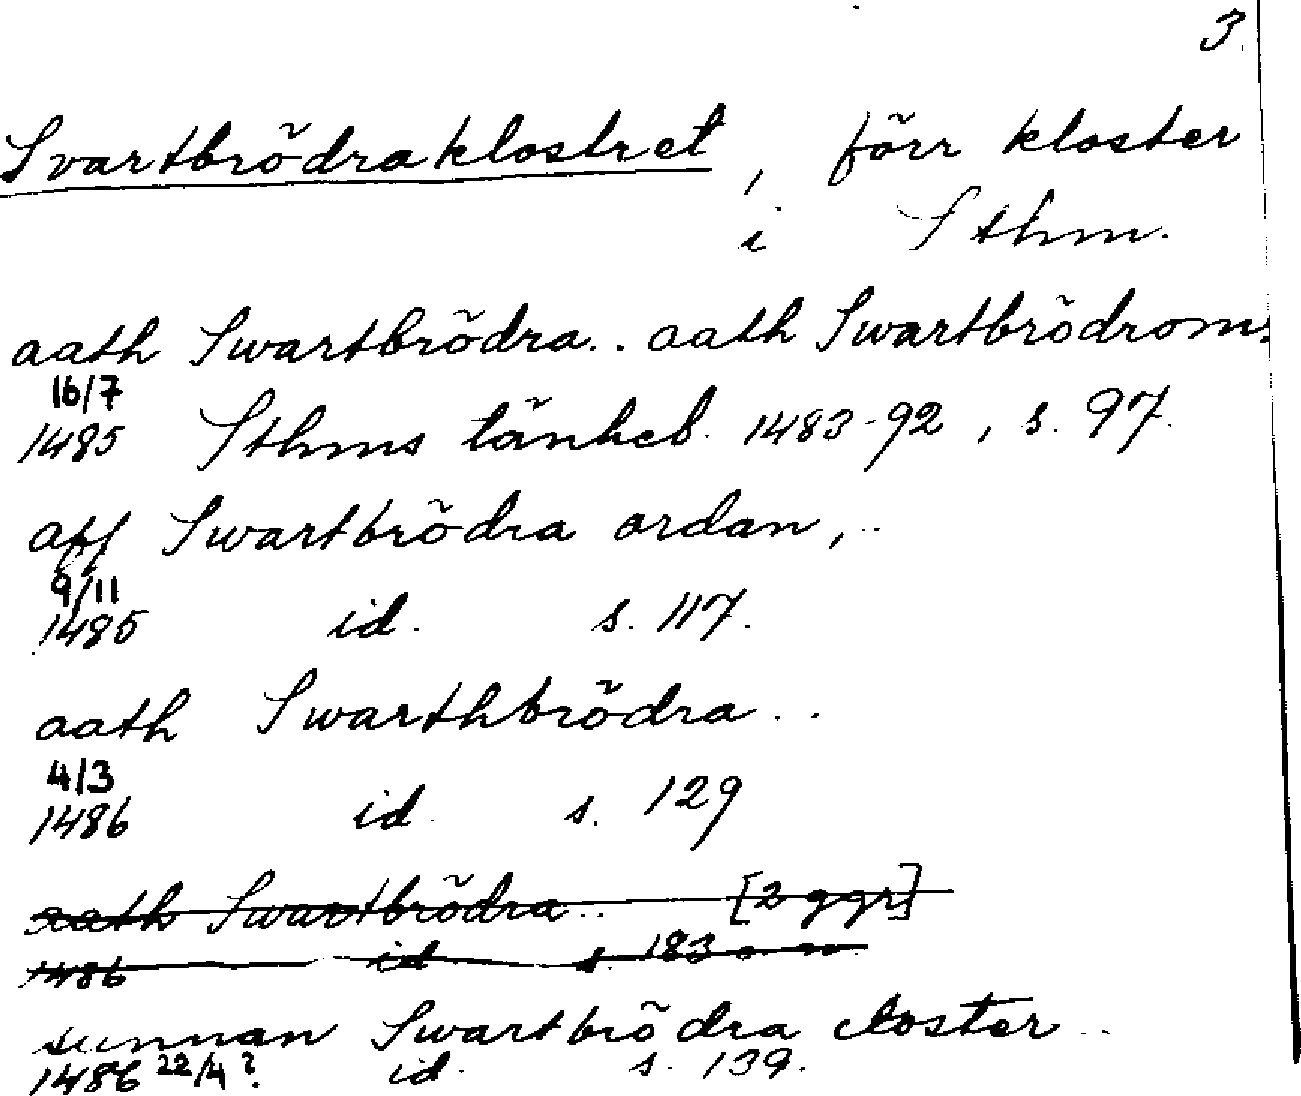 3.
Svartbrödraklostret, förr kloster
i Sthm.
aath Swartbrödra.. aath Swartbrödroms
16/7
1485 Sthms tänkeb. 1483-92, s. 97.
aff Swartbrödra ordan,..
9/11
1485 id. s. 117.
aath Swarthbrödra..
4/3
1486 id. s. 129
aath Swartbrödra.. [2 ggr]
1486 id s. 183 o. m.
sunnan Swartbrödra closter..
1486 22/4? id. s. 139.